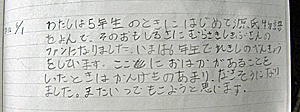 6/1 わたしは5年生のときにはじめて源氏物語
をよんで、そのおもしろさにむらさきしきぶさんの
ファンになりました。いまは6年生でれきしのべんきょう
をしています。ここ におはかがあることを
いたときはかんげきのあまり、なきそうになり
ました。またいってもこようと思います。